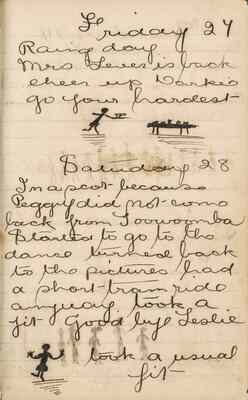 Friday 27
Rainy day
Mrs Leves is back
cheer up Darkie
go your hardest
Saturday 28
In a scot because
Peggy did not come
back from Toowoomba
Started to go to the
dance turned back
to the pictures had
a short tram ride
anyway took a
fit Good bye Leslie
took a usual
fit